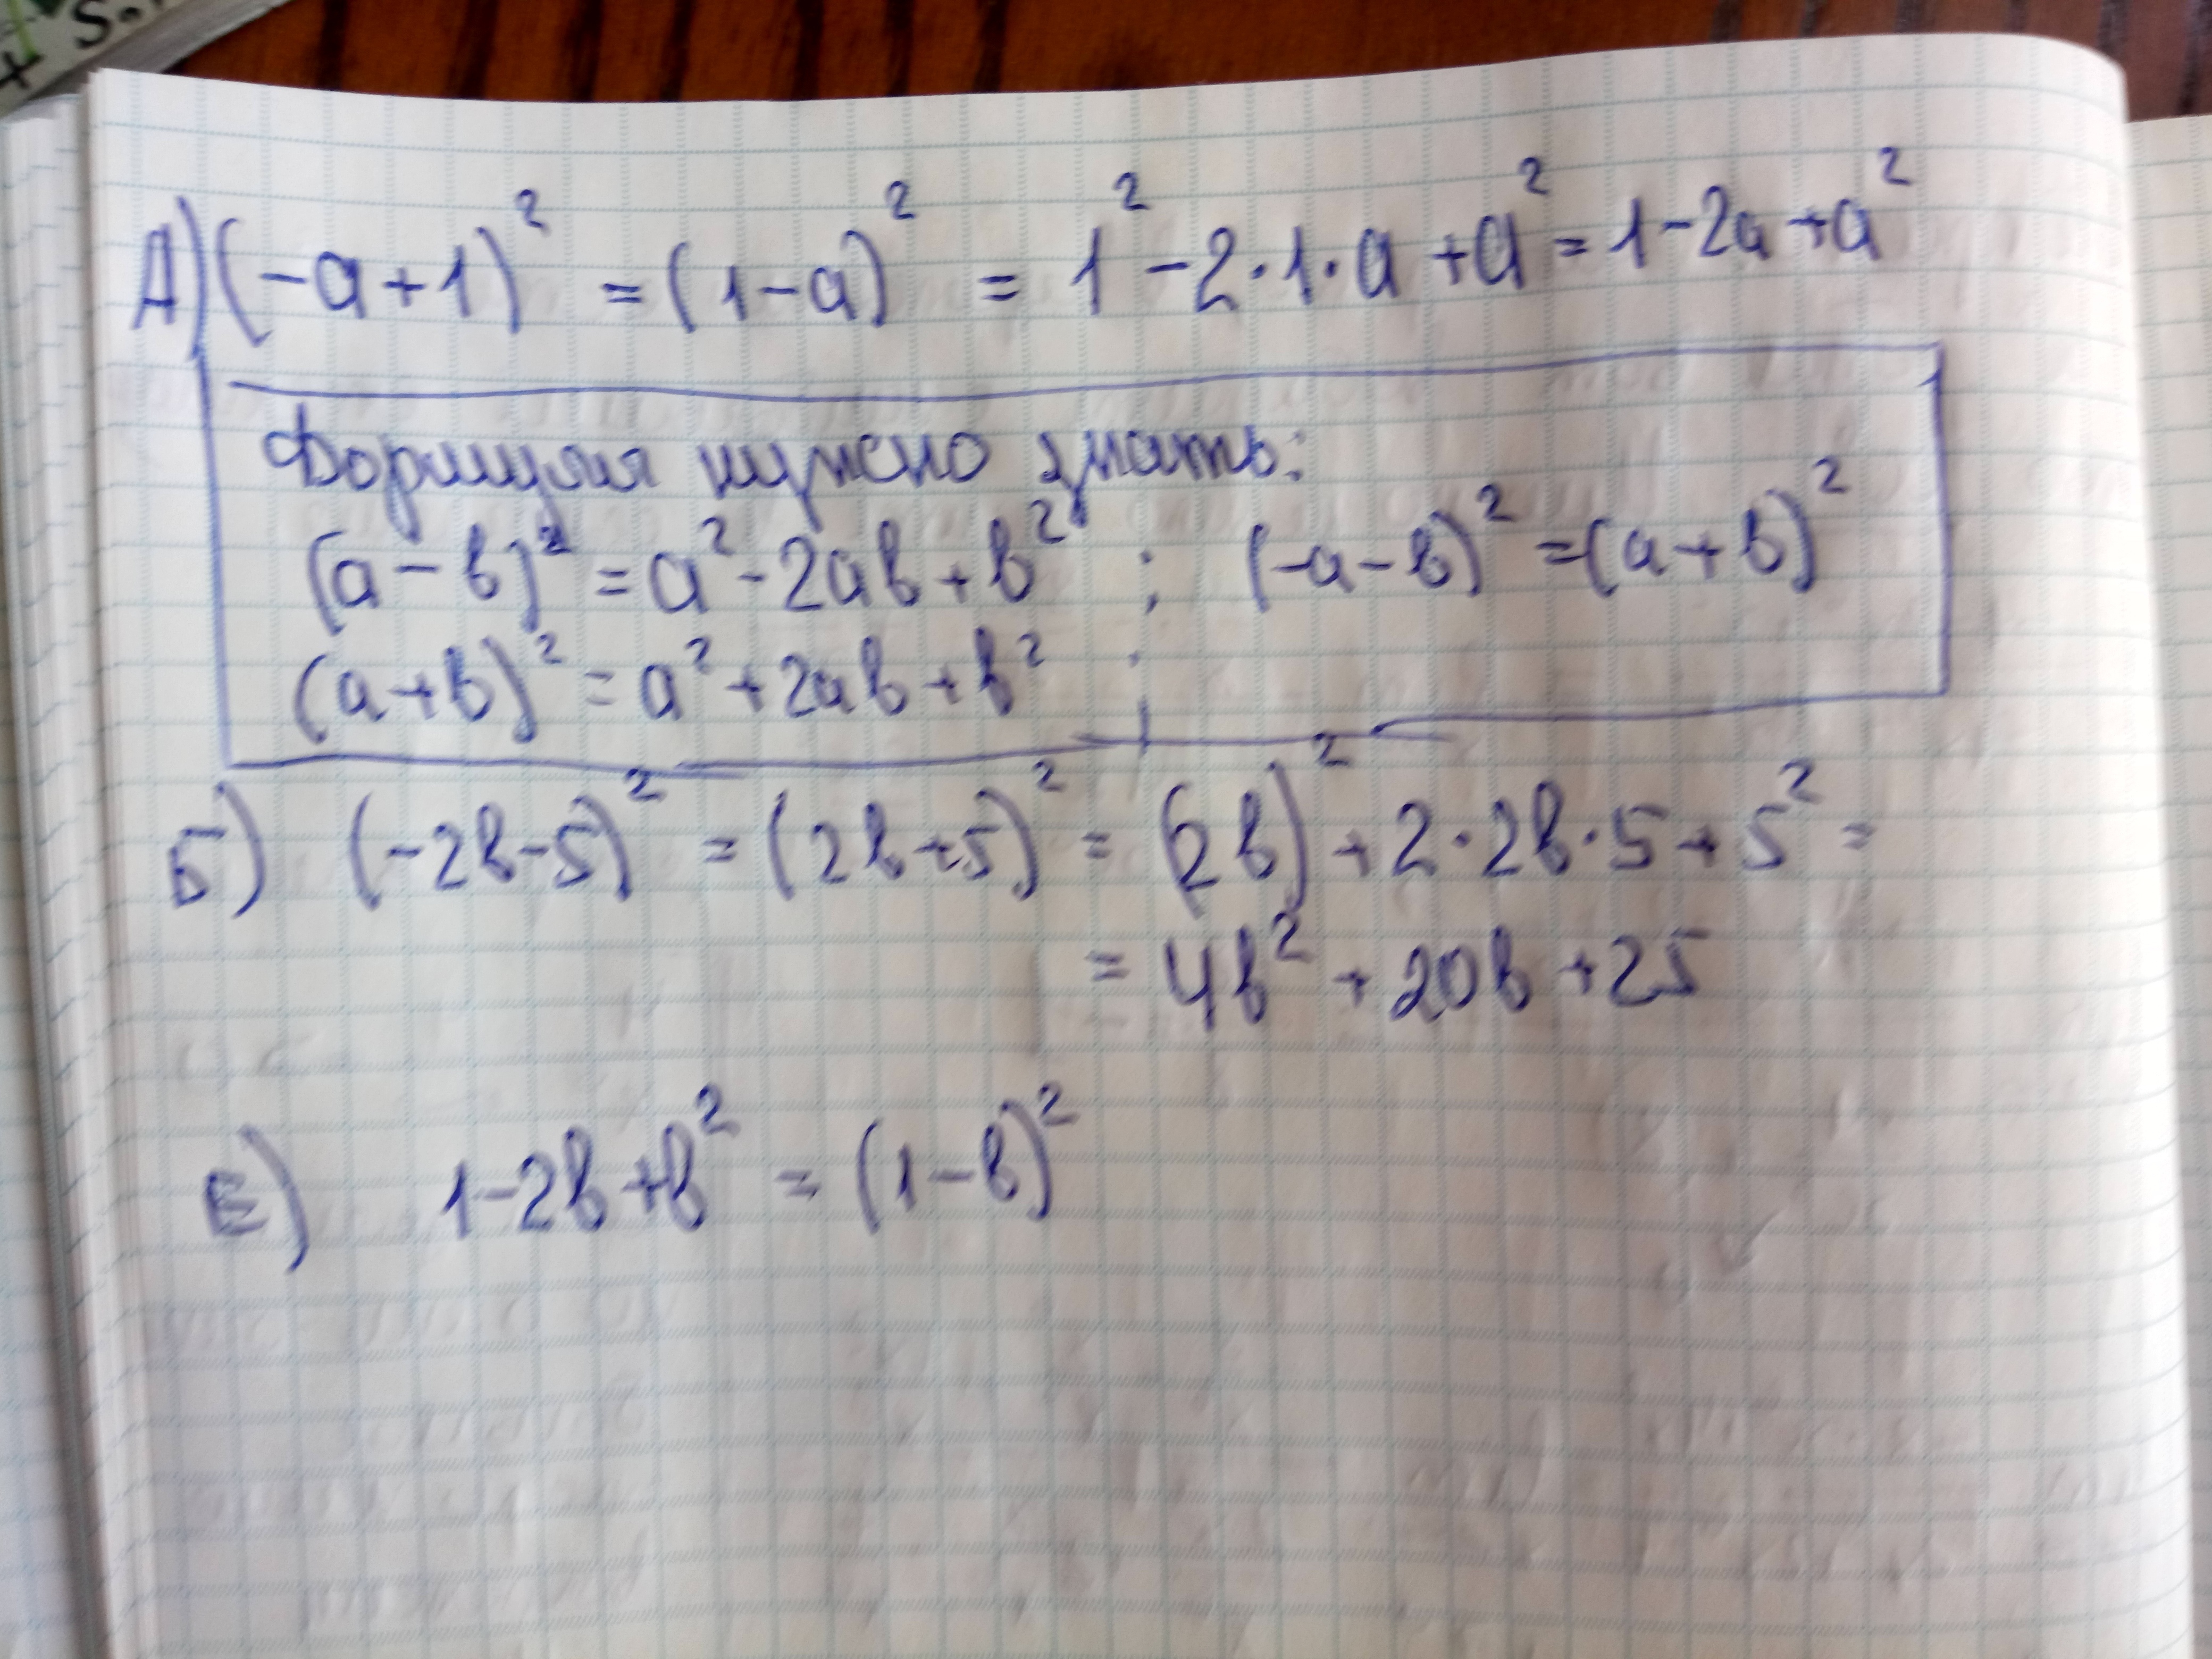 А) (-a+1)² = (1-a)² = 1² - 2·1·a + a² = 1-2a+a²
Формулы нужно знать:
(a-b)² = a² - 2ab + b² ; (-a-b)² = (a+b)²
(a+b)² = a² + 2ab + b² ;
Б) (-2b-5)² = (2b+5)² = (2b)² + 2·2b·5 + 5² =
= 4b² + 20b + 25
Е) 1-2b+b² = (1-b)²